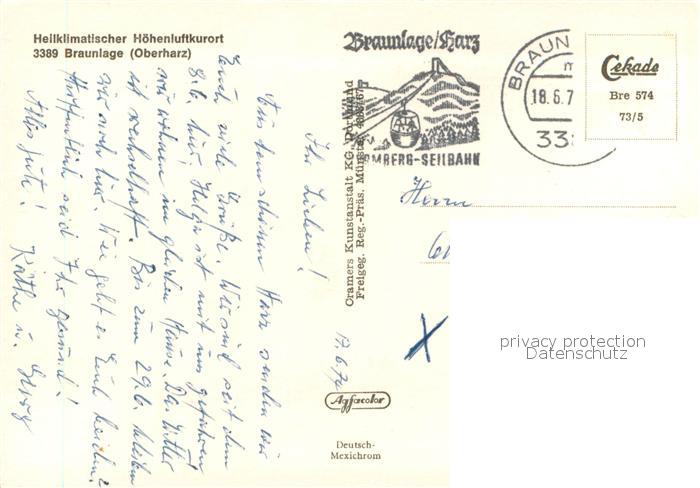 Heilklimatischer Höhenluftkurort
3389 Braunlage (Oberharz)
Ihr Lieben!
Aus dem schönen Harz senden wir
Euch viele Grüße. Wir sind seit dem
8.6. hier. Helga ist mit uns gefahren
wir wohnen im gleichen Hause. Das Wetter
ist wechselhaft. Bis zum 29.6. bleiben
wir noch hier. Wie geht es Euch beiden?
Hoffentlich seid Ihr gesund!
Alles Gute! Käthe u.
17.6.74
Cramers Kunstanstalt KG, Dortmund
Freigeg. Reg.-Präs. Münster
Agfacolor
Deutsch-
Mexichrom
Braunlage/Harz
MBERG-SEILBAHN
BRAUN
18.6.7
33
Cekade
Bre 574
73/5
Herrn
privacy protection
Datenschutz